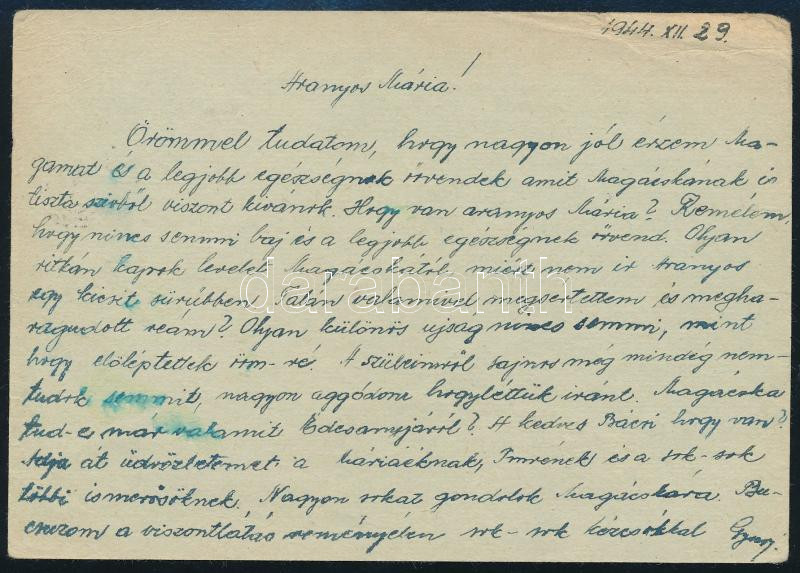 1944. XII. 29.
Aranyos Mária!
Örömmel tudatom, hogy nagyon jól érzem Ma-
gamat és a legjobb egészségnek örvendek amit Magácskának is
tiszta szivből viszont kivánok. Hogy van aranyos Mária? Remélem,
hogy nincs semmi baj és a legjobb egészségnek örvend. Olyan
ritkán kapok levelet Magácskától, miért nem ir Aranyos
egy kicsit sürübben. Talán valamivel megsertettem és megha-
ragudott reám? Olyan különös ujság nincs semmi, mint
hogy előléptettek örm-ré. A szüleimről sajnos még mindég nem
tudok semmit, nagyon aggódom hogyléttük iránt. Magácska
tud-e már valamit Édesanyjáról? A kedves Bácsi hogy van?
Adja át üdvözletemet a Máriáéknak, Imrének és a sok-sok
többi ismerősöknek. Nagyon sokat gondolok Magácskára. Bu-
csuzom a viszontlátás reményében sok-sok kézcsókkal
darabanth.com